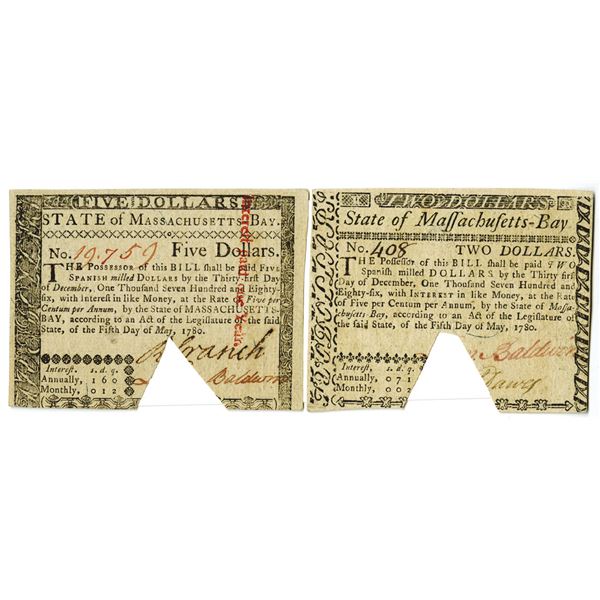 FIVE DOLLARS
STATE of MASSACHUSETTS-BAY.
No. 19.759 Five Dollars.
THE POSSESSOR of this BILL shall be paid FIVE
SPANISH milled DOLLARS by the Thirty-first Day
of December, One Thousand Seven Hundred and Eighty-
six, with Interest in like Money, at the Rate of Five per
Centum per Annum, by the State of MASSACHUSETTS-
BAY, according to an Act of the Legislature of the said
State, of the Fifth Day of May, 1780.
R Cranch
Interest. s. d. q.
Annually, 1 6 0
Monthly, 0 1 2
Baldwin
Interest paid one Year.
TWO DOLLARS
State of Maſſachuſetts-Bay
No. 408 TWO DOLLARS.
THE Poſſeſſor of this BILL ſhall be paid TWO
Spaniſh milled DOLLARS by the Thirty firſt
Day of December, One Thouſand Seven Hundred and
Eighty-ſix, with INTEREST in like Money, at the Rate
of Five per Centum per Annum, by the State of Maſſa-
chuſetts Bay, according to an Act of the Legiſlature of
the ſaid State, of the Fifth Day of May, 1780.
Baldwin
Intereſt. s. d. q.
Annually, 0 7 1
Monthly, 0 0 2
Dawes